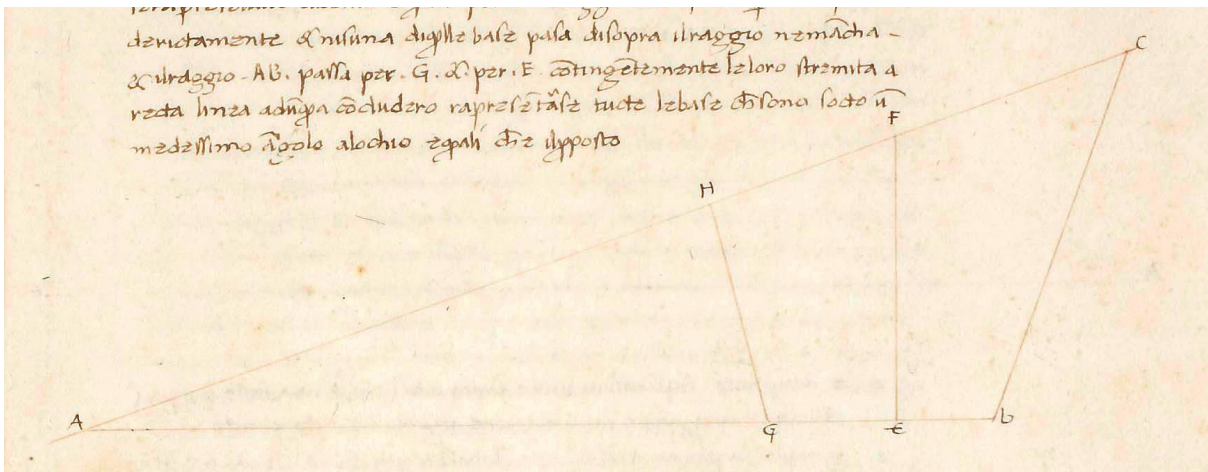 derictamente & nisuna di q̄lle base pasa disopra ilraggio nemācha -
& ilraggio - AB. passa per . G . & . per . E . cōtingētemente leloro stremita a
recta linea adūq̄a cōcludero rapresētarse tucte lebase ch̄ sono socto ū
medessimo āgolo alochio eq̄ali ch̄e ilp̄posto
C
F
H
A
G
E
b